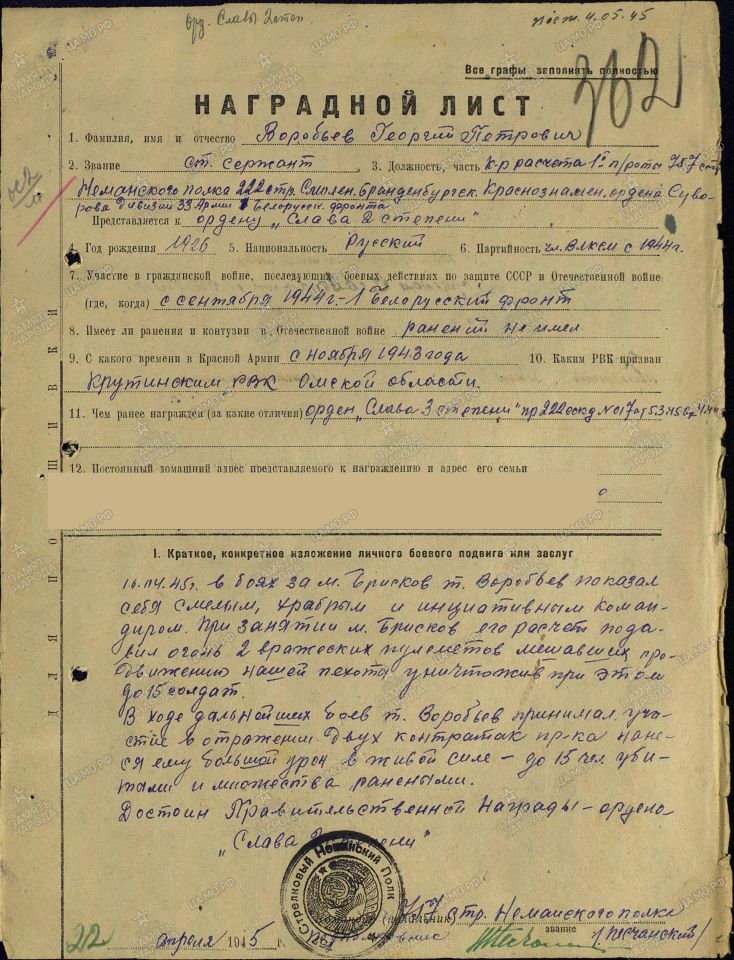 орд. Славы 2 степ.
пост. 4.05.45
Все графы заполнять полностью
362
НАГРАДНОЙ ЛИСТ
1. Фамилия, имя и отчество Воробьев Георгий Петрович
2. Звание ст. сержант 3. Должность, часть к-р расчета 1й п/роты 757 стр
Неманского полка 222 стр. Смолен. Бранденбургск. Краснознамен, ордена Суво-
рова дивизии 33 Армии 1 Белорусск. фронта
Представляется к ордену „Слава 2 степени"
4. Год рождения 1926 5. Национальность Русский 6. Партийность чл. ВЛКСМ с 1944г.
7. Участие в гражданской войне, последующих боевых действиях по защите СССР и Отечественной войне
(где, когда) с сентября 1944г. - 1 Белорусский фронт
8. Имеет ли ранения и контузии в Отечественной войне ранений не имел
9. С какого времени в Красной Армии с ноября 1943 года 10. Каким РВК призван
Крутинским РВК Омской области.
11. Чем ранее награжден (за какие отличия) орден „Слава 3 степени" пр 222 сскд №017 от 5.3.45
12. Постоянный домашний адрес представляемого к награждению и адрес его семьи
ДЛЯ ПОДШИВКИ
I. Краткое, конкретное изложение личного боевого подвига или заслуг
16.04.45г. в боях за м. Брисков т. Воробьев показал
себя смелым, храбрым и инициативным коман-
диром. При занятии м. Брисков его расчет пода-
вил огонь 2 вражеских пулеметов мешавших про-
движению нашей пехоты уничтожив при этом
до 15 солдат.
В ходе дальнейших боев т. Воробьев принимал уча-
стие в отражении двух контратак пр-ка нане-
ся ему большой урон в живой силе - до 15 чел. уби-
тыми и множества ранеными.
Достоин Правительственной Награды - ордена
„Слава 2 степени"
Стрелковый Неманский Полк
Командир (начальник) 757 стр. Неманского полка
подполковник звание /Песчанский/
22 апреля 1945 г.
ПАМЯТЬ НАРОДА
ЦАМО.РФ